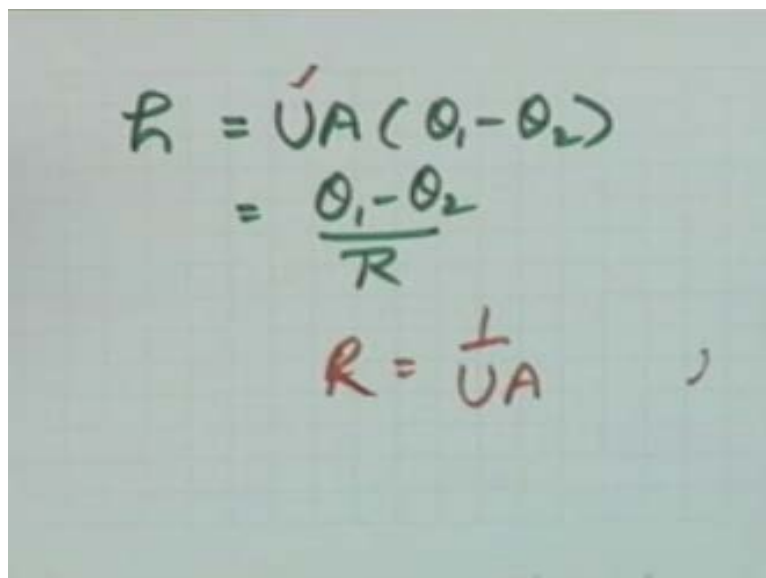 h = UA(θ₁-θ₂)
= θ₁-θ₂ / R
R = 1 / UA ,